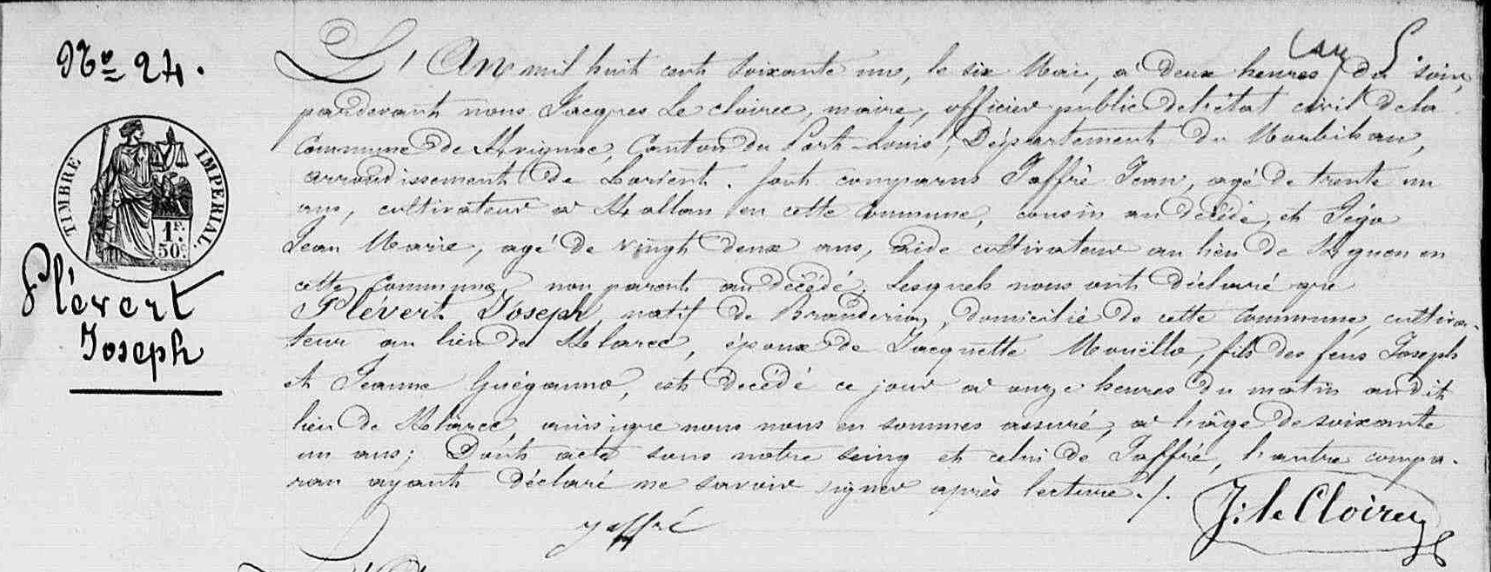 N.o 24.
TIMBRE IMPERIAL
1F. 50c.
Plévert
Joseph
L'An mil huit cent soixante un, le six Mai, à deux heures du soir,
pardevant nous Jacques Le cloirec, maire, officier public de l'état civil de la
Commune de Kvignac, Canton du Port-Louis, Département du Morbihan,
arrondissement de Lorient. sont comparus Jaffré Jean, agé de trente un
ans, cultivateur à en cette commune, cousin au décédé, et Jégo
Jean Marie, agé de vingt deux ans, aide cultivateur au lieu de en
cette commune, non parent au décédé; Lesquels nous ont déclaré que
Plévert Joseph, natif de Branderion, domicilié de cette commune, cultiva-
teur au lieu de, époux de Jacquette Mouëllo, fils des feus Joseph
et Jeanne Guéganno, est décédé ce jour à onze heures du matin audit
lieu de, ainsi que nous nous en sommes assuré, à l'âge de soixante
un ans; Dont acte sous notre seing et celui de Jaffré, l'autre compa-
ran ayant déclaré ne savoir signer après lecture./.
Jaffré
J: le Cloirec